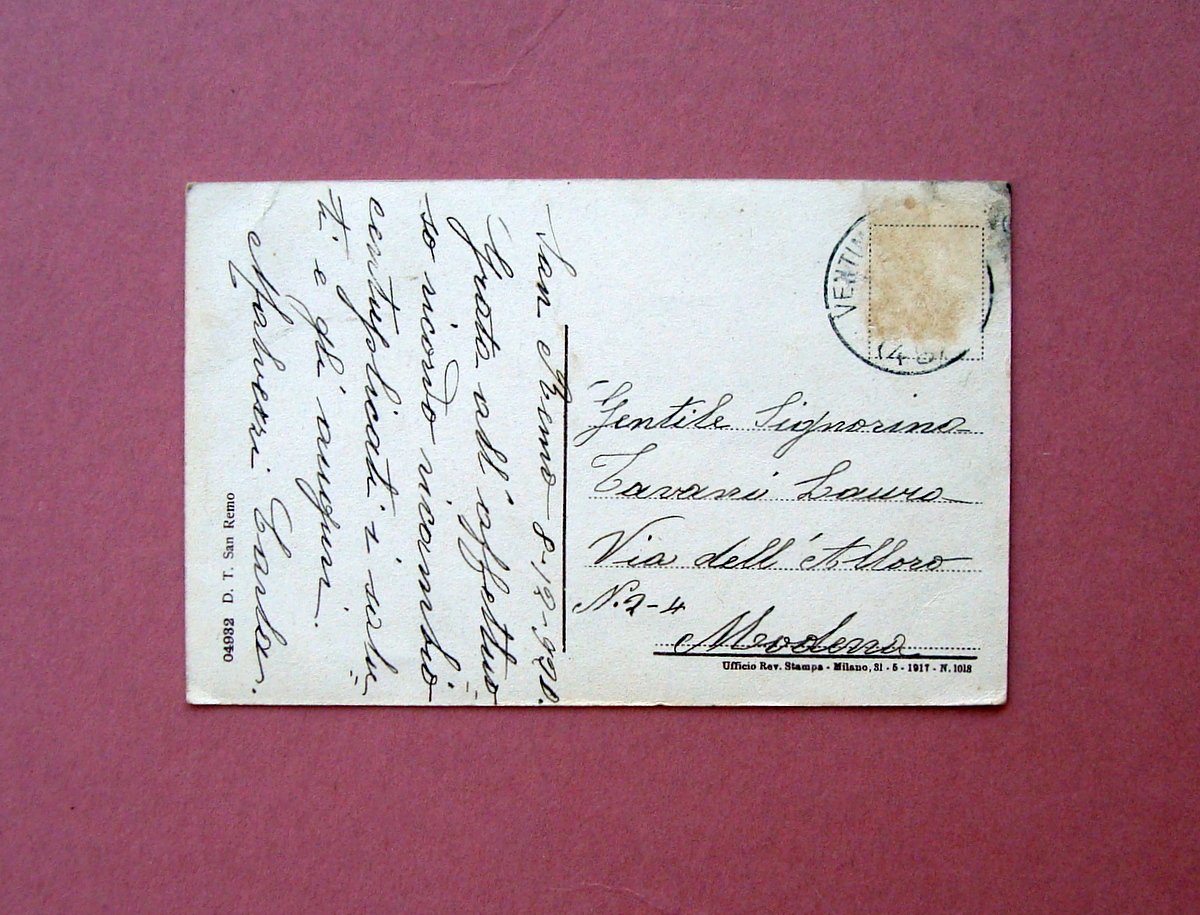 San Remo 8-12-920.
Grato all'affettuo
so ricordo ricambio
centuplicati i salu=
ti e gli auguri.
Malvezzi Carlo.
04932 D. T. San Remo
VENTIM
(4
Gentile Signorina
Tavani Laura
Via dell'Alloro
N. 2-4
Modena
Ufficio Rev. Stampa - Milano, 31 - 5 - 1917 - N. 1018